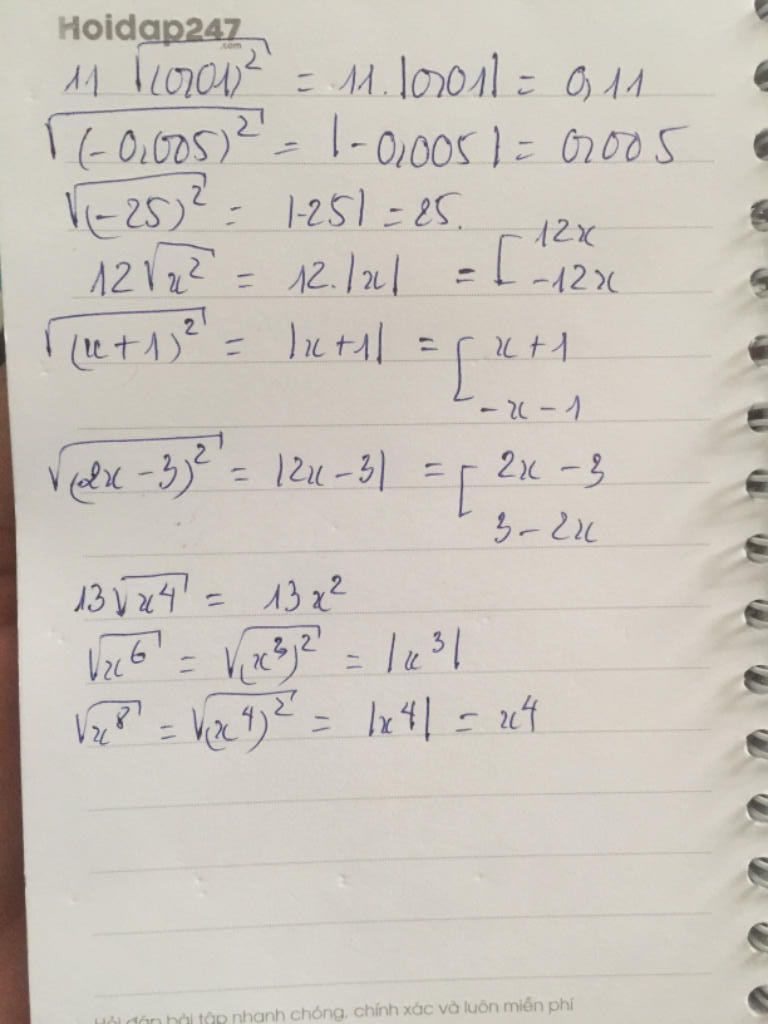 Hoidap247
.com
11 √(0,01)² = 11.|0,01| = 0,11
√(-0,005)² = |-0,005| = 0,005
√(-25)² = |-25| = 25.
12√x² = 12.|x| = [ 12x
-12x
√(x+1)² = |x+1| = [ x+1
-x-1
√(2x-3)² = |2x-3| = [ 2x-3
3-2x
13√x⁴ = 13x²
√x⁶ = √(x³)² = |x³|
√x⁸ = √(x⁴)² = |x⁴| = x⁴
Hỏi đáp bài tập nhanh chóng, chính xác và luôn miễn phí